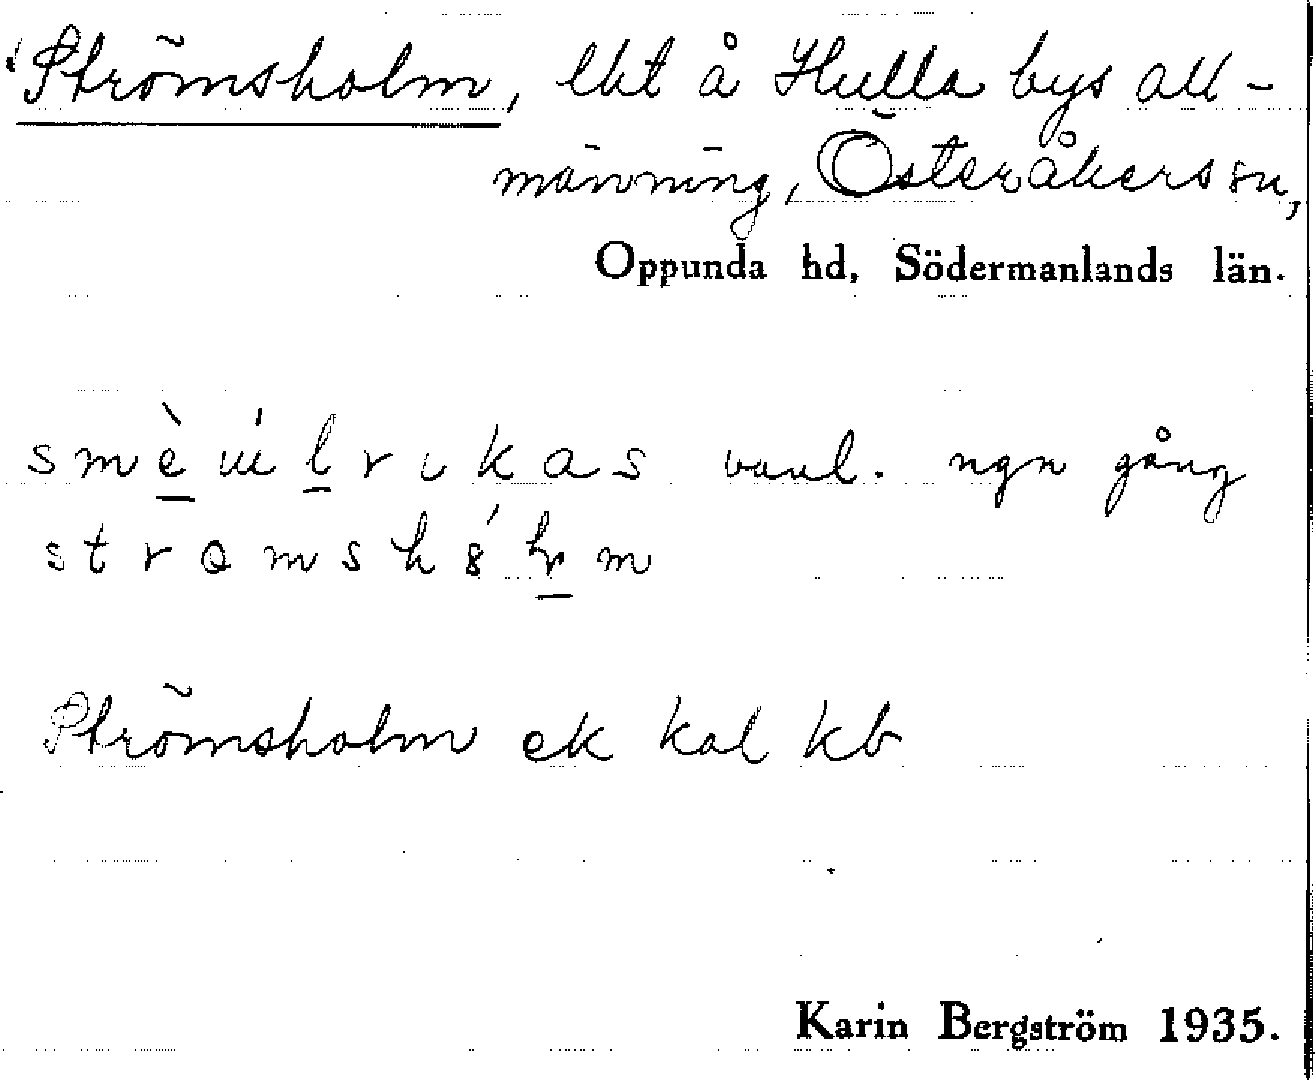 Strömsholm, lht å Hulla bys all-
männing, Österåkers sn,
Oppunda hd, Södermanlands län.
vanl. ngn gång
Strömsholm ek kal kb
Karin Bergström 1935.